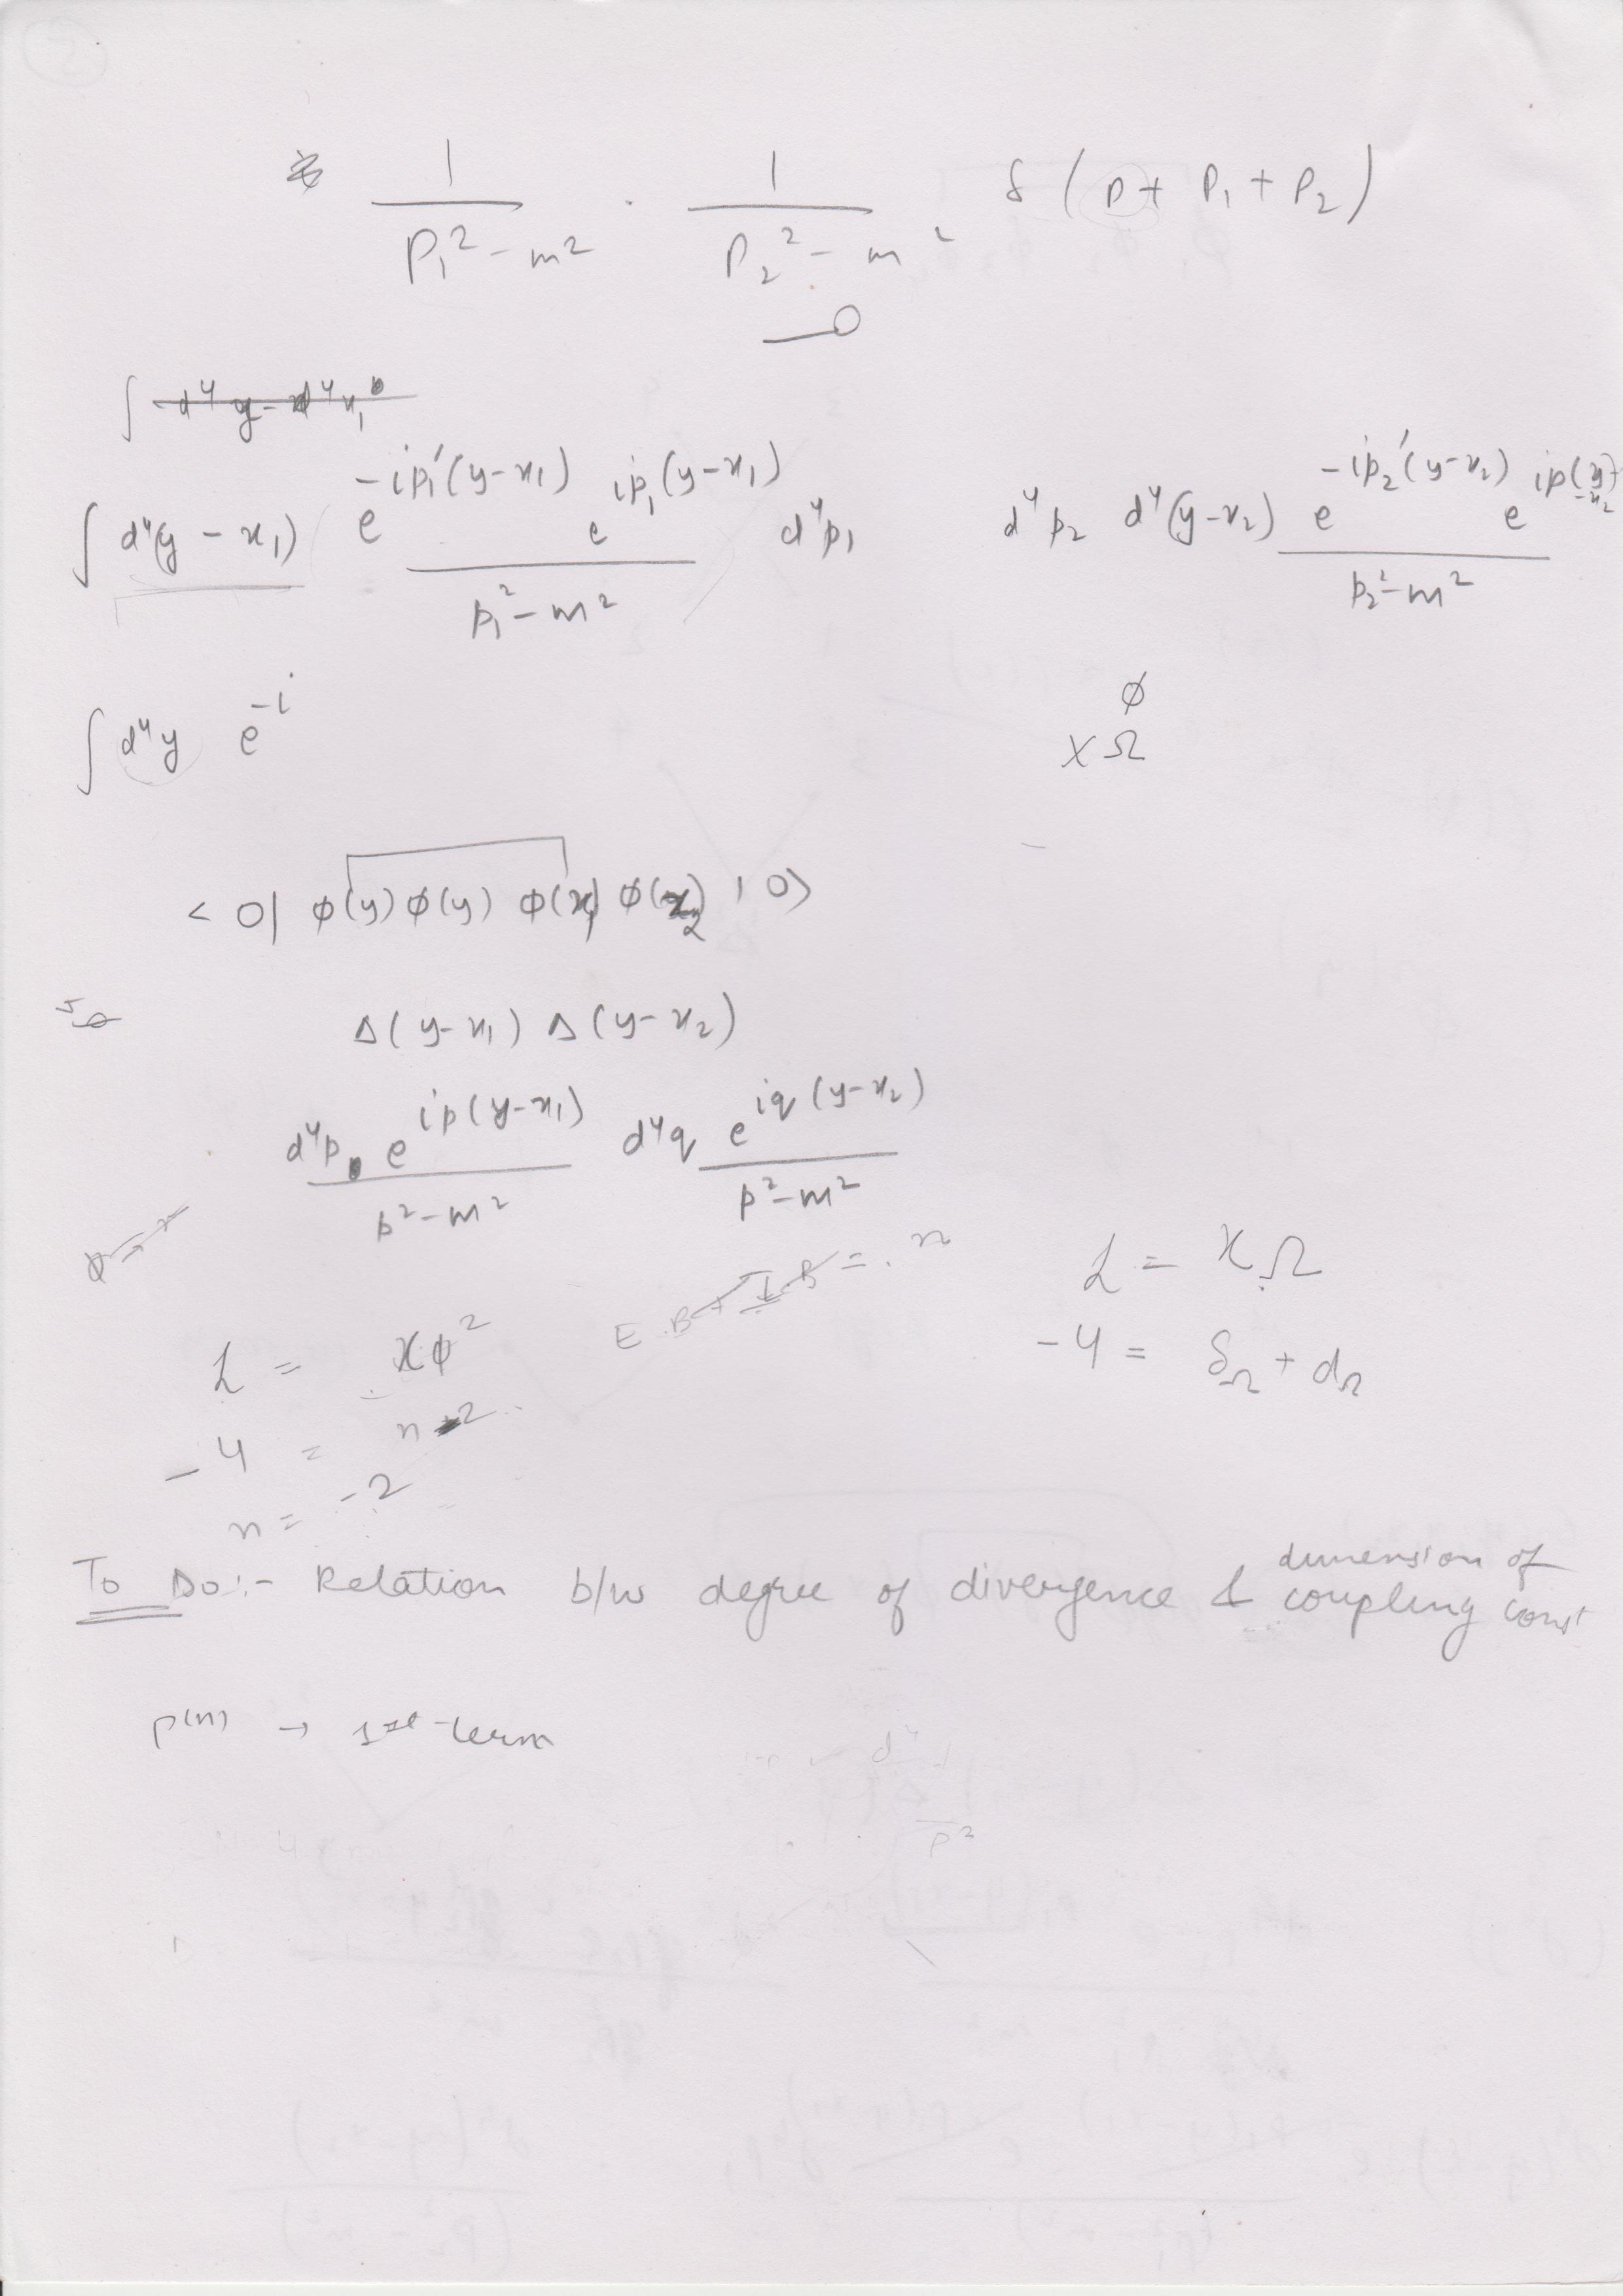 1/(P₁² - m²) . 1/(P₂² - m²) δ (p + P₁ + P₂)
∫ d⁴y d⁴x₁
∫ d⁴(y - x₁) e^{-ip₁'(y-x₁)} e^{ip₁(y-x₁)}/(p₁² - m²) d⁴p₁ d⁴p₂ d⁴(y-x₂) e^{-ip₂'(y-x₂)} e^{ip(y-x₂)}/(p₂² - m²)
φ
∫ d⁴y e^{-i} χΩ
< 0| φ(y) φ(y) φ(x₁) φ(x₂) |0>
Δ(y-x₁) Δ(y-x₂)
d⁴p e^{ip(y-x₁)}/(p²-m²) d⁴q e^{iq(y-x₂)}/(p²-m²)
E.B + I.B = n
L = χΩ
L = χφ²
-4 = δ_Ω + d_Ω
-4 = n+2
n = -2
To Do:- Relation b/w degree of divergence & dimension of coupling const
p(n) → 1st term
d⁴
p²